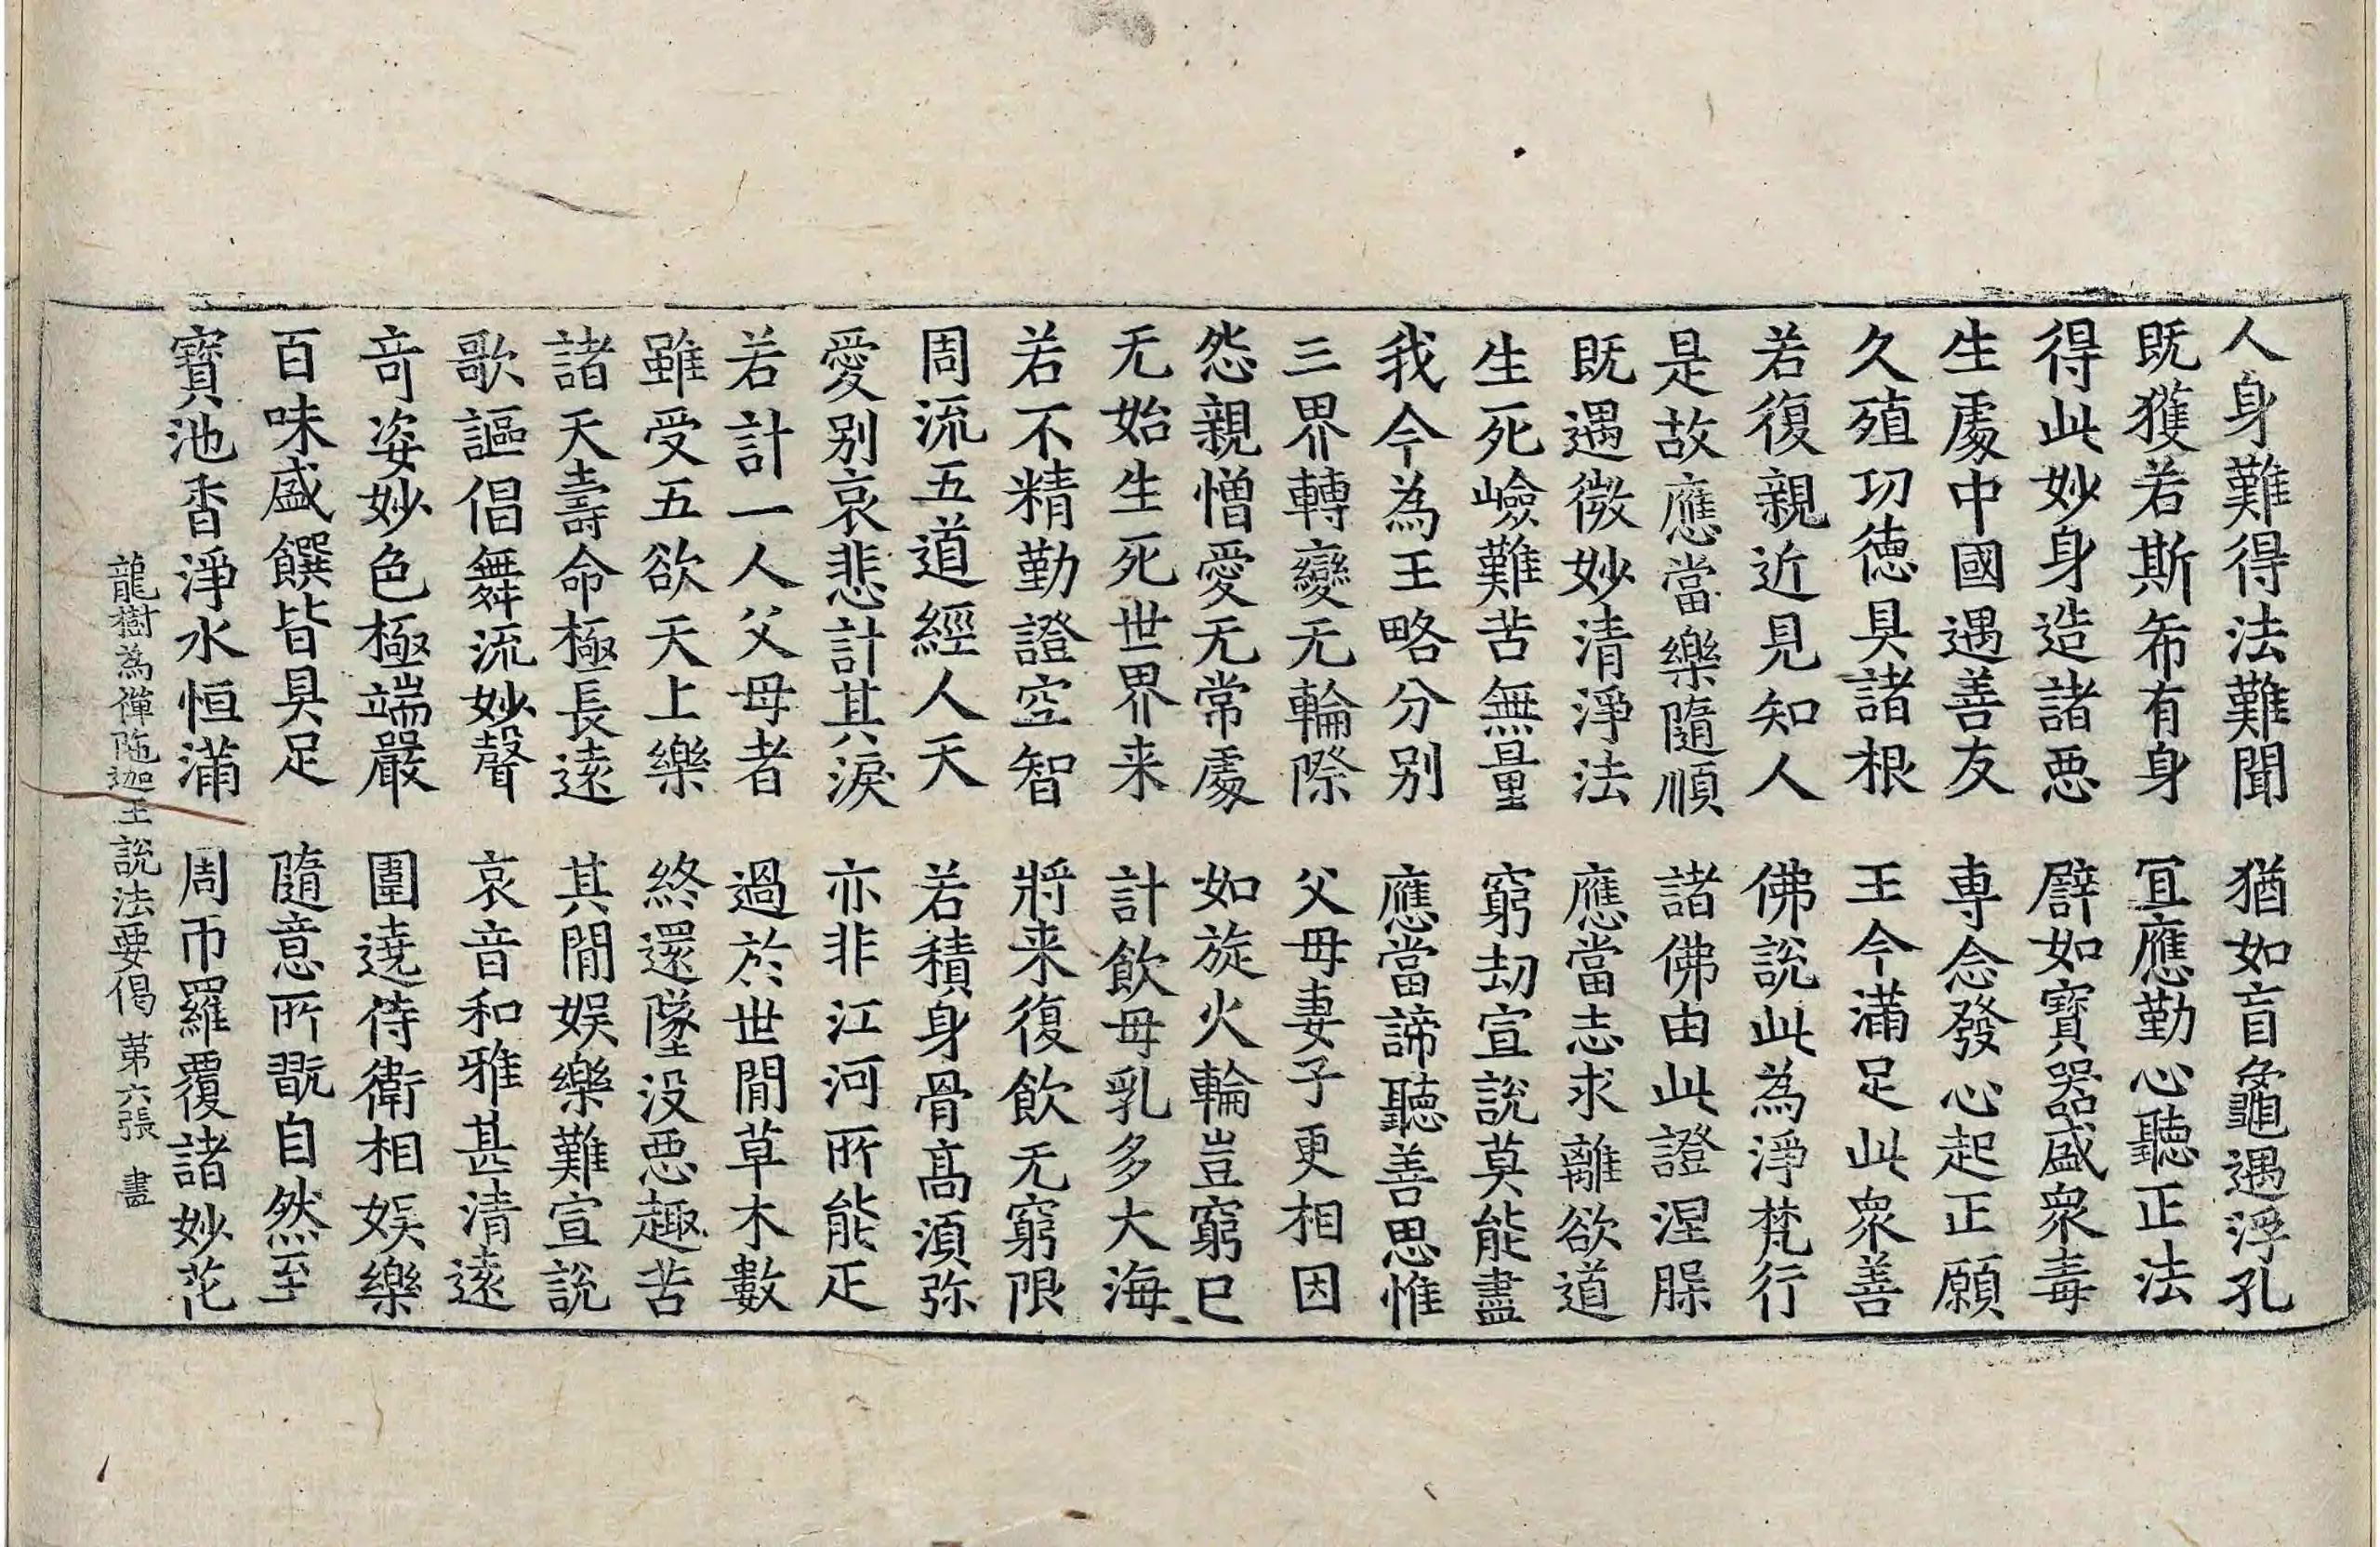 人身難得法難聞　猶如盲龜遇浮孔
既獲若斯希有身　冝應勤心聽正法
得此妙身造諸惡　譬如寶器盛衆毒
生處中國遇善友　専念發心起正願
久殖功德具諸根　王今滿足此衆善
若復親近見知人　佛說此為淨梵行
是故應當樂隨順　諸佛由此證涅槃
既遇微妙清淨法　應當志求離欲道
生死嶮難苦無量　窮劫宣說莫能盡
我今為王略分別　應當諦聽善思惟
三界轉變无輪際　父母妻子更相因
怨親憎愛无常處　如旋火輪豈窮已
无始生死世界来　計飲母乳多大海
若不精勤證空智　將来復飲无窮限
周流五道經人天　若積身骨髙湏弥
愛別哀悲計其淚　亦非江河所能疋
若計一人父母者　過於世閒草木數
雖受五欲天上樂　終還墜没惡趣苦
諸天壽命極長遠　其閒娯樂難宣說
歌謳倡舞流妙聲　哀音和雅甚清遠
竒姿妙色極端嚴　圍遶侍衛相娯樂
百味盛饌皆具足　隨意所翫自然至
寶池香淨水恒滿　周帀羅覆諸妙花
龍樹為禪陁迦王說法要偈　苐六張　畫